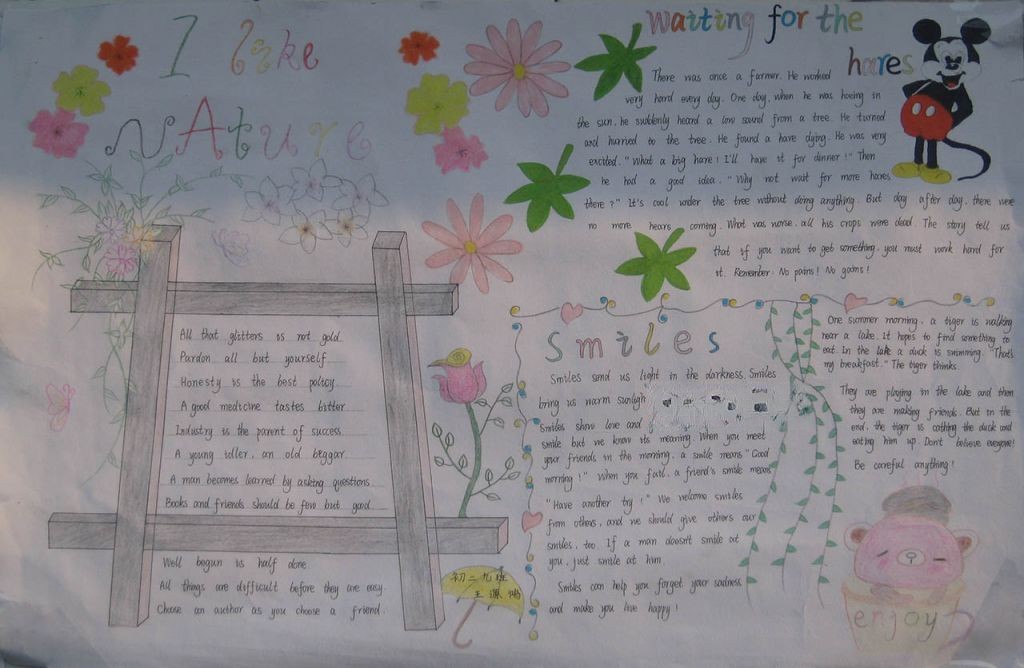 I like
NAture
All that glitters is not gold.
Pardon all but yourself.
Honesty is the best policy.
A good medicine tastes bitter.
Industry is the parent of success.
A young idler, an old beggar.
A man becomes learned by asking questions.
Books and friends should be few but good.
Well begun is half done
All things are difficult before they are easy.
Choose an author as you choose a friend.
初二九班
waiting for the
hares
There was once a farmer. He worked
very hard every day. One day, when he was hoeing in
the sun, he suddenly heard a low sound from a tree. He turned
and hurried to the tree. He found a hare dying. He was very
excited. "What a big hare! I'll have it for dinner!" Then
he had a good idea. "Why not wait for more hares
there?" It's cool under the tree without doing anything. But day after day, there were
no more hears coming. What was worse, all his crops were dead. The story tell us
that if you want to get something, you must work hard for
it. Remember: No pains! No gains!
Smiles
Smiles send us light in the darkness. Smiles
bring us warm sunligh
Smiles show love and
smile but we know its meaning. When you meet
your friends in the morning, a smile means "Good
morning!" When you fail, a friend's smile means
"Have another try!" We welcome smiles
from others, and we should give others our
smiles, too. If a man doesn't smile at
you, just smile at him.
Smiles can help you forget your sadness
and make you live happy!
One summer morning, a tiger is walking
near a lake. It hopes to find something to
eat. In the lake a duck is swimming. "That's
my breakfast." The tiger thinks.
They are playing in the lake and then
they are making friends. But in the
end, the tiger is cathing the duck and
eating him up. Don't believe everyone!
Be careful anything!
enjoy